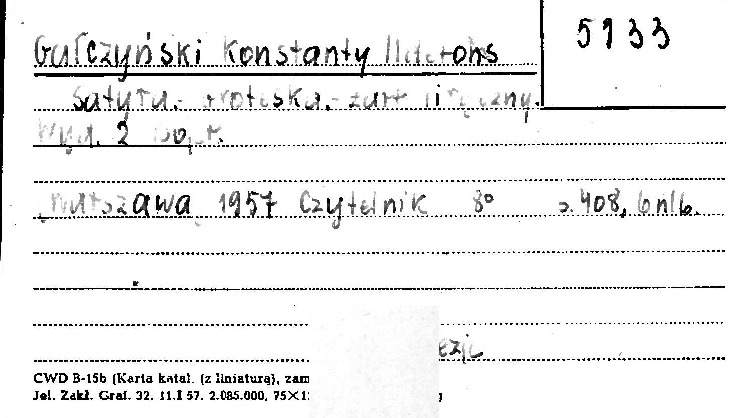 5933
Gałczyński Konstanty Ildefons
Satyra.- groteska.- żart liryczny.
Wyd. 2 popr.
Warszawa 1957 Czytelnik 8° s. 408, 6 nlb.
CWD B-15b (Karta katal. (z liniaturą), zam
Jel. Zakł. Graf. 32. 11.I 57. 2.085.000, 75×1